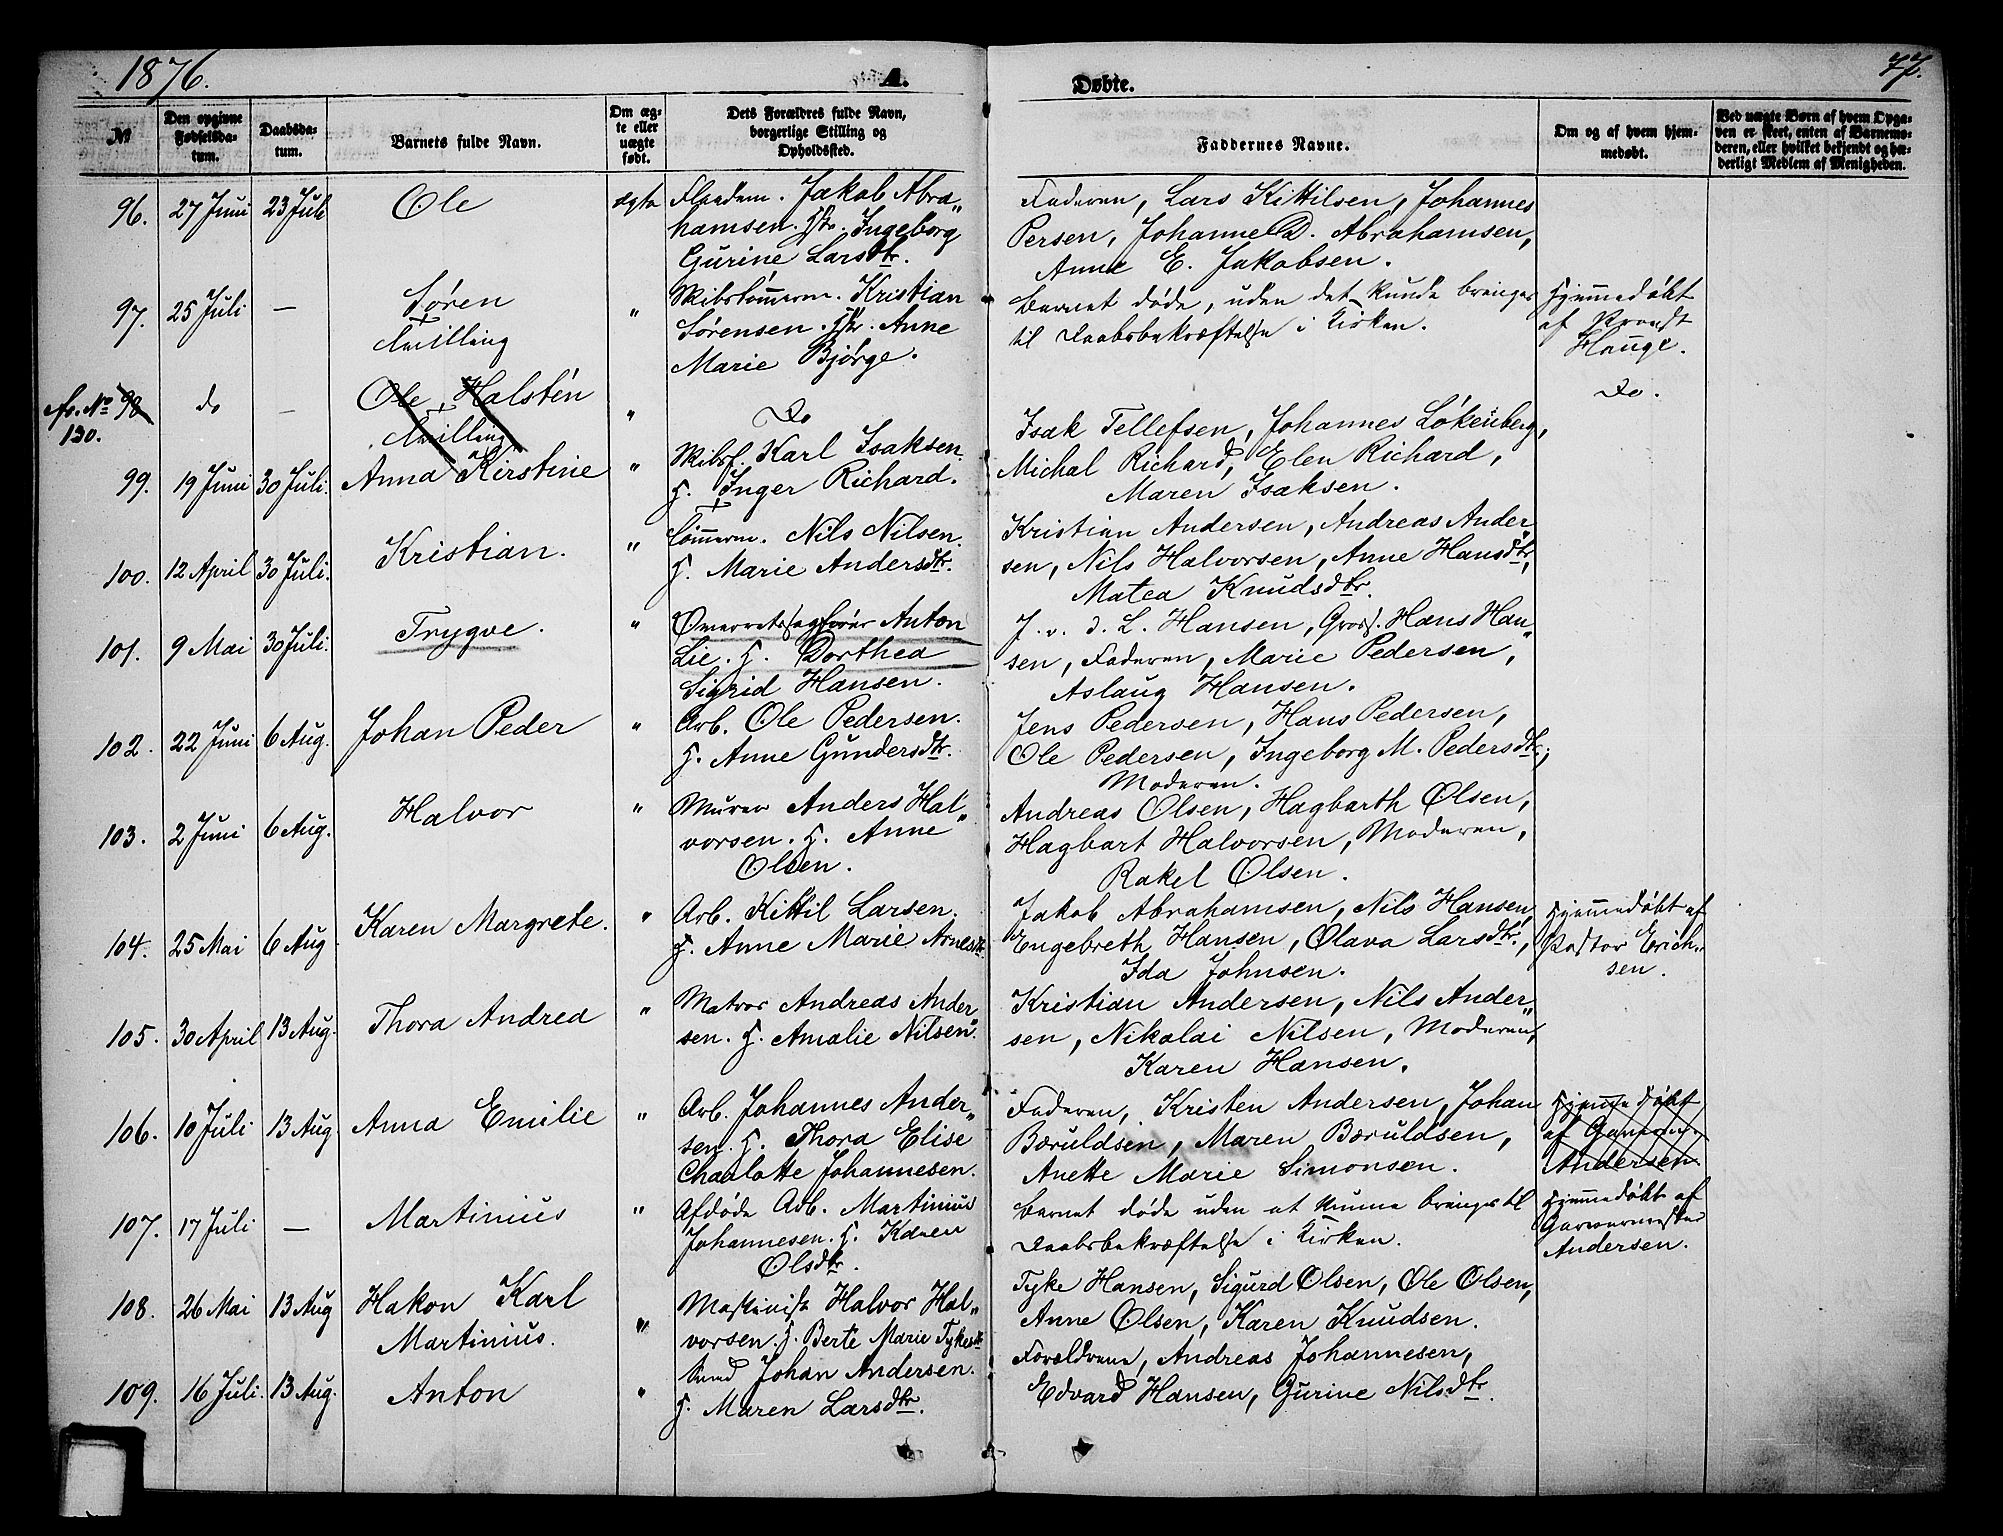 1876.
A.
Døbte.
77.
№
Den opgivne Fødselsda-tum.
Daabsda-tum.
Barnets fulde Navn.
Om æg-te eller uægte født.
Dets Forældres fulde Navn, borgerlige Stilling og Opholdssted.
Faddernes Navne.
Om og af hvem hjem-medøbt.
Ved uægte Børn af hvem Opga-ven er skeet, enten af Barnemo-deren, eller hvilket bekjendt og hæ-derligt Medlem af Menigheden.
96. 27 Juni 23 Juli Ole ægte
Jakob Abra„
hamsen. Hstr. Ingeborg
Gurine Larsdtr.
Faderen, Lars Kittilsen, Johannes
Persen, Johanne D. Abrahamsen,
Anne E. Jakobsen.
97. 25 Juli — Søren "
Tvilling
Skibstømmerm. Kristian
Sørensen. Hstr. Anne
Marie Bjørge.
Barnet døde, uden det kunde bringes
til Daabsbekræftelse i Kirken.
Hjemmedøbt
af Provst
Hauge.
fr. No 98
130.
do — Ole Halsten "
Tvilling
Do
Do.
99. 19 Juni 30 Juli. Anna Kirstine "
Skibst. Karl Isaksen.
H. Inger Richard.
Isak Tellefsen, Johannes Løkenberg,
Michal Richard, Elen Richard,
Maren Isaksen.
100. 12 April 30 Juli. Kristian. "
Tømmerm. Nils Nilsen.
H. Marie Andersdtr.
Kristian Andersen, Andreas Ander„
sen, Nils Halvorsen, Anne Hansdtr,
Matea Knudsdtr.
101. 9 Mai 30 Juli. Trygve. "
Overretssagfører Anton
Lie. H. Dorthea
Sigrid Hansen.
J. v. d. L. Hansen, Gross. Hans Han„
sen, Faderen, Marie Pedersen,
Aslaug Hansen.
102. 22 Juni 6 Aug. Johan Peder "
Arb. Ole Pedersen.
H. Anne Gundersdtr.
Jens Pedersen, Hans Pedersen,
Ole Pedersen, Ingeborg M. Pedersdtr.,
Moderen.
103. 2 Juni 6 Aug. Halvor "
Murer Anders Hal„
vorsen. H. Anne
Olsen.
Andreas Olsen, Hagbarth Olsen,
Hagbart Halvorsen, Moderen,
Rakel Olsen.
104. 25 Mai 6 Aug Karen Margrete. "
Arb. Kittil Larsen.
H. Anne Marie Arnesdtr.
Jakob Abrahamsen, Nils Hansen,
Engebreth Hansen, Olava Larsdtr.,
Ida Johnsen.
Hjemmedøbt af
Pastor Erich„
sen.
105. 30 April 13 Aug. Thora Andrea "
Matros Andreas Ander„
sen. H. Amalie Nilsen.
Kristian Andersen, Nils Ander„
sen, Nikolai Nilsen, Moderen,
Karen Hansen.
106. 10 Juli 13 Aug Anna Emilie "
Arb. Johannes Ander„
sen. H. Thora Elise
Charlotte Johannesen.
Faderen, Kristen Andersen, Johan
Bæruldsen, Maren Bæruldsen,
Anette Marie Simonsen.
Hjemmedøbt
af
Andersen
107. 17 Juli — Martinius "
Afdøde Arb. Martinius
Johannesen. H. Karen
Olsdtr.
Barnet døde uden at kunne bringes til
Daabsbekræftelse i Kirken.
Hjemmedøbt af
Garvermester
Andersen.
108. 26 Mai 13 Aug Hakon Karl "
Martinius.
Maskinist Halvor Hal„
vorsen. H. Berte Marie Tykesdtr
Tyke Hansen, Sigurd Olsen, Ole Olsen,
Anne Olsen, Karen Knudsen.
109. 16 Juli. 13 Aug. Anton "
Johan Andersen.
H. Maren Larsdtr.
Forældrene, Andreas Johannesen,
Edvard Hansen, Gurine Nilsdtr.